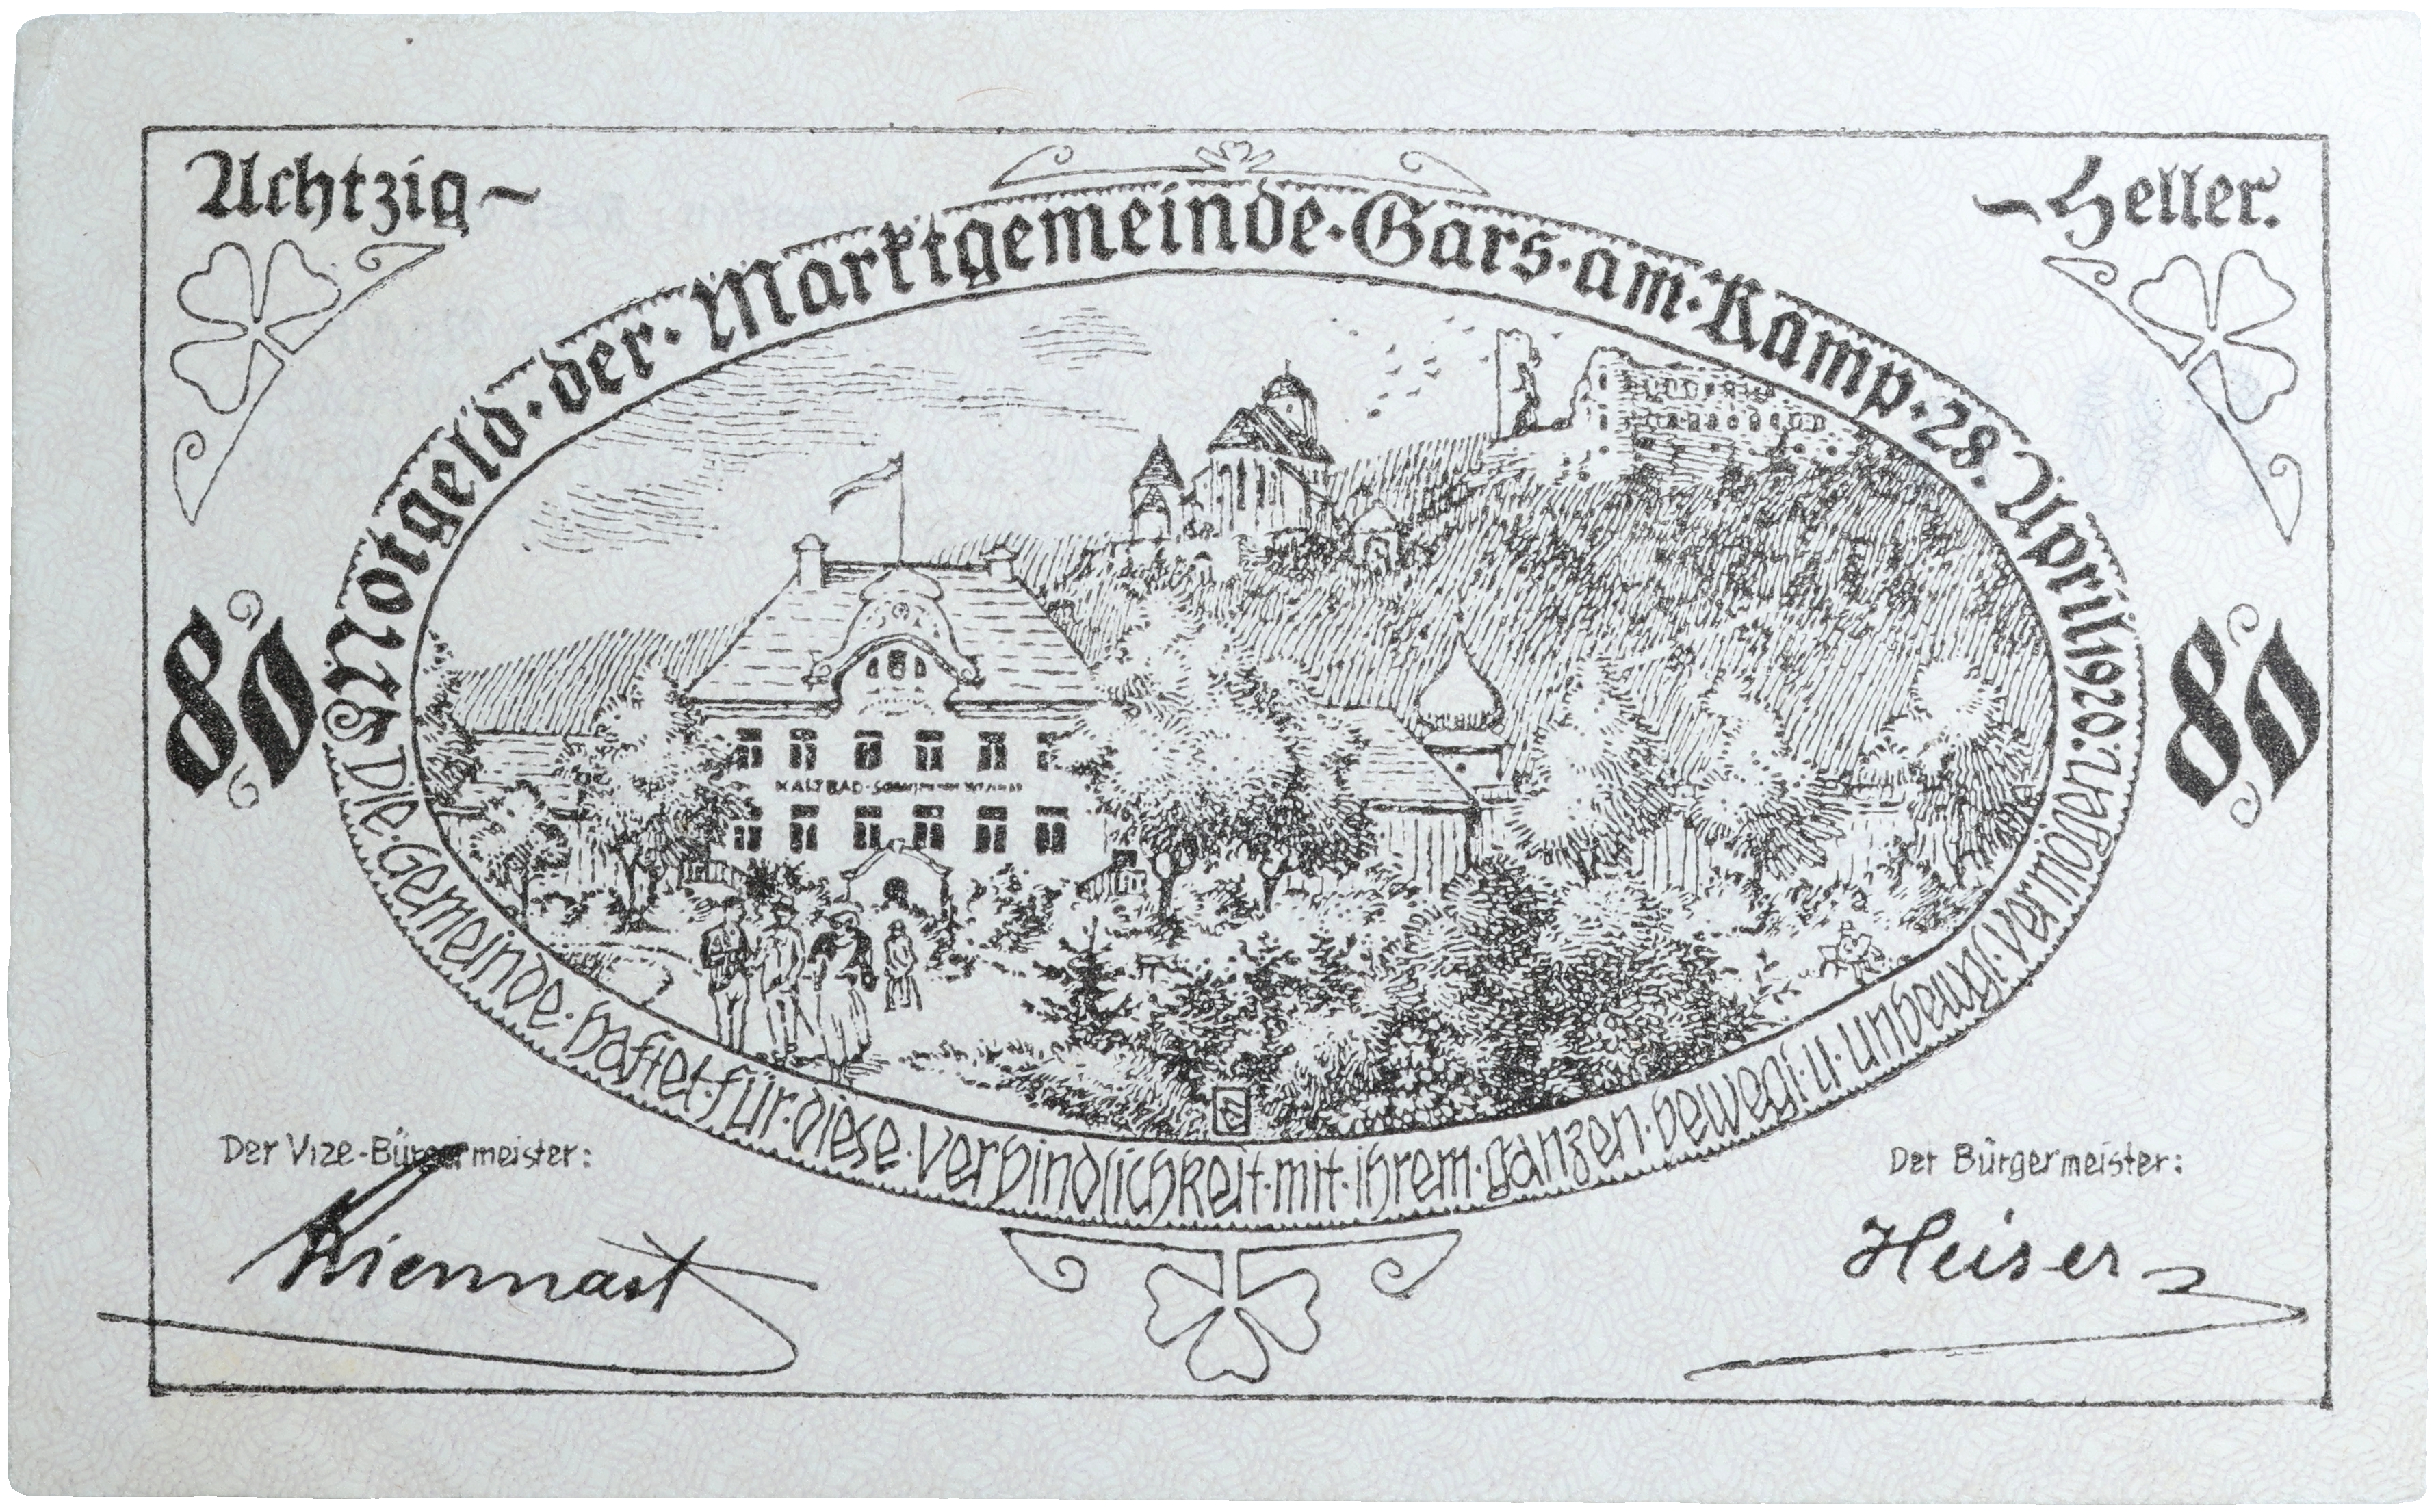 Achtzig ~
~ Heller.
Notgeld · der · Marktgemeinde · Gars · am · Kamp · 28. April 1920. Auflage
80
80
Die · Gemeinde · haftet · für · diese · Verbindlichkeit · mit · ihrem · ganzen · bewegl · u · unbewegl · Vermögen
KALTBAD
Der Vize-Bürgermeister:
Kiennast
Der Bürgermeister:
Heiser